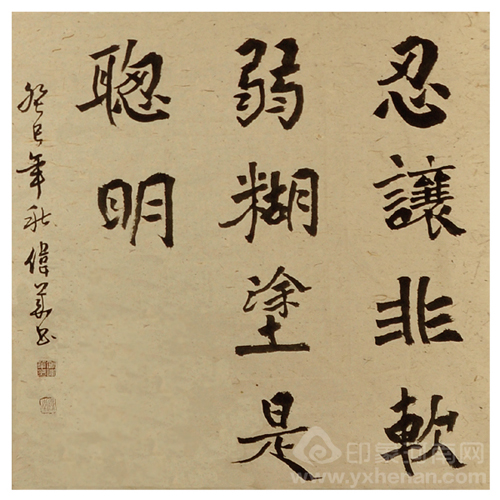 忍讓非軟
弱糊塗是
聰明
癸巳年秋偉業書
印象河南网
www.yxhenan.com